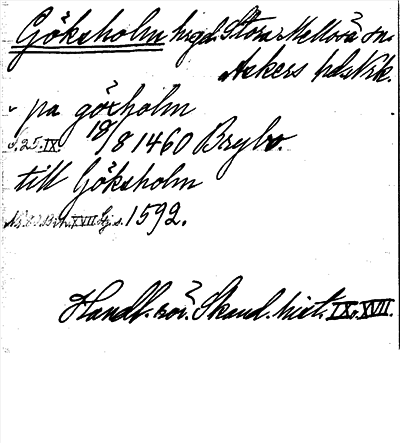 Göksholm hrgd. Stora Mellösa sn.
Askers hd. Nrk.
pa göxholm
s. 25. IX. 18/8 1460 Brybo.
till Göksholm
XVII s. 1592.
Handl. rör. Skand. hist. IX, XVII.